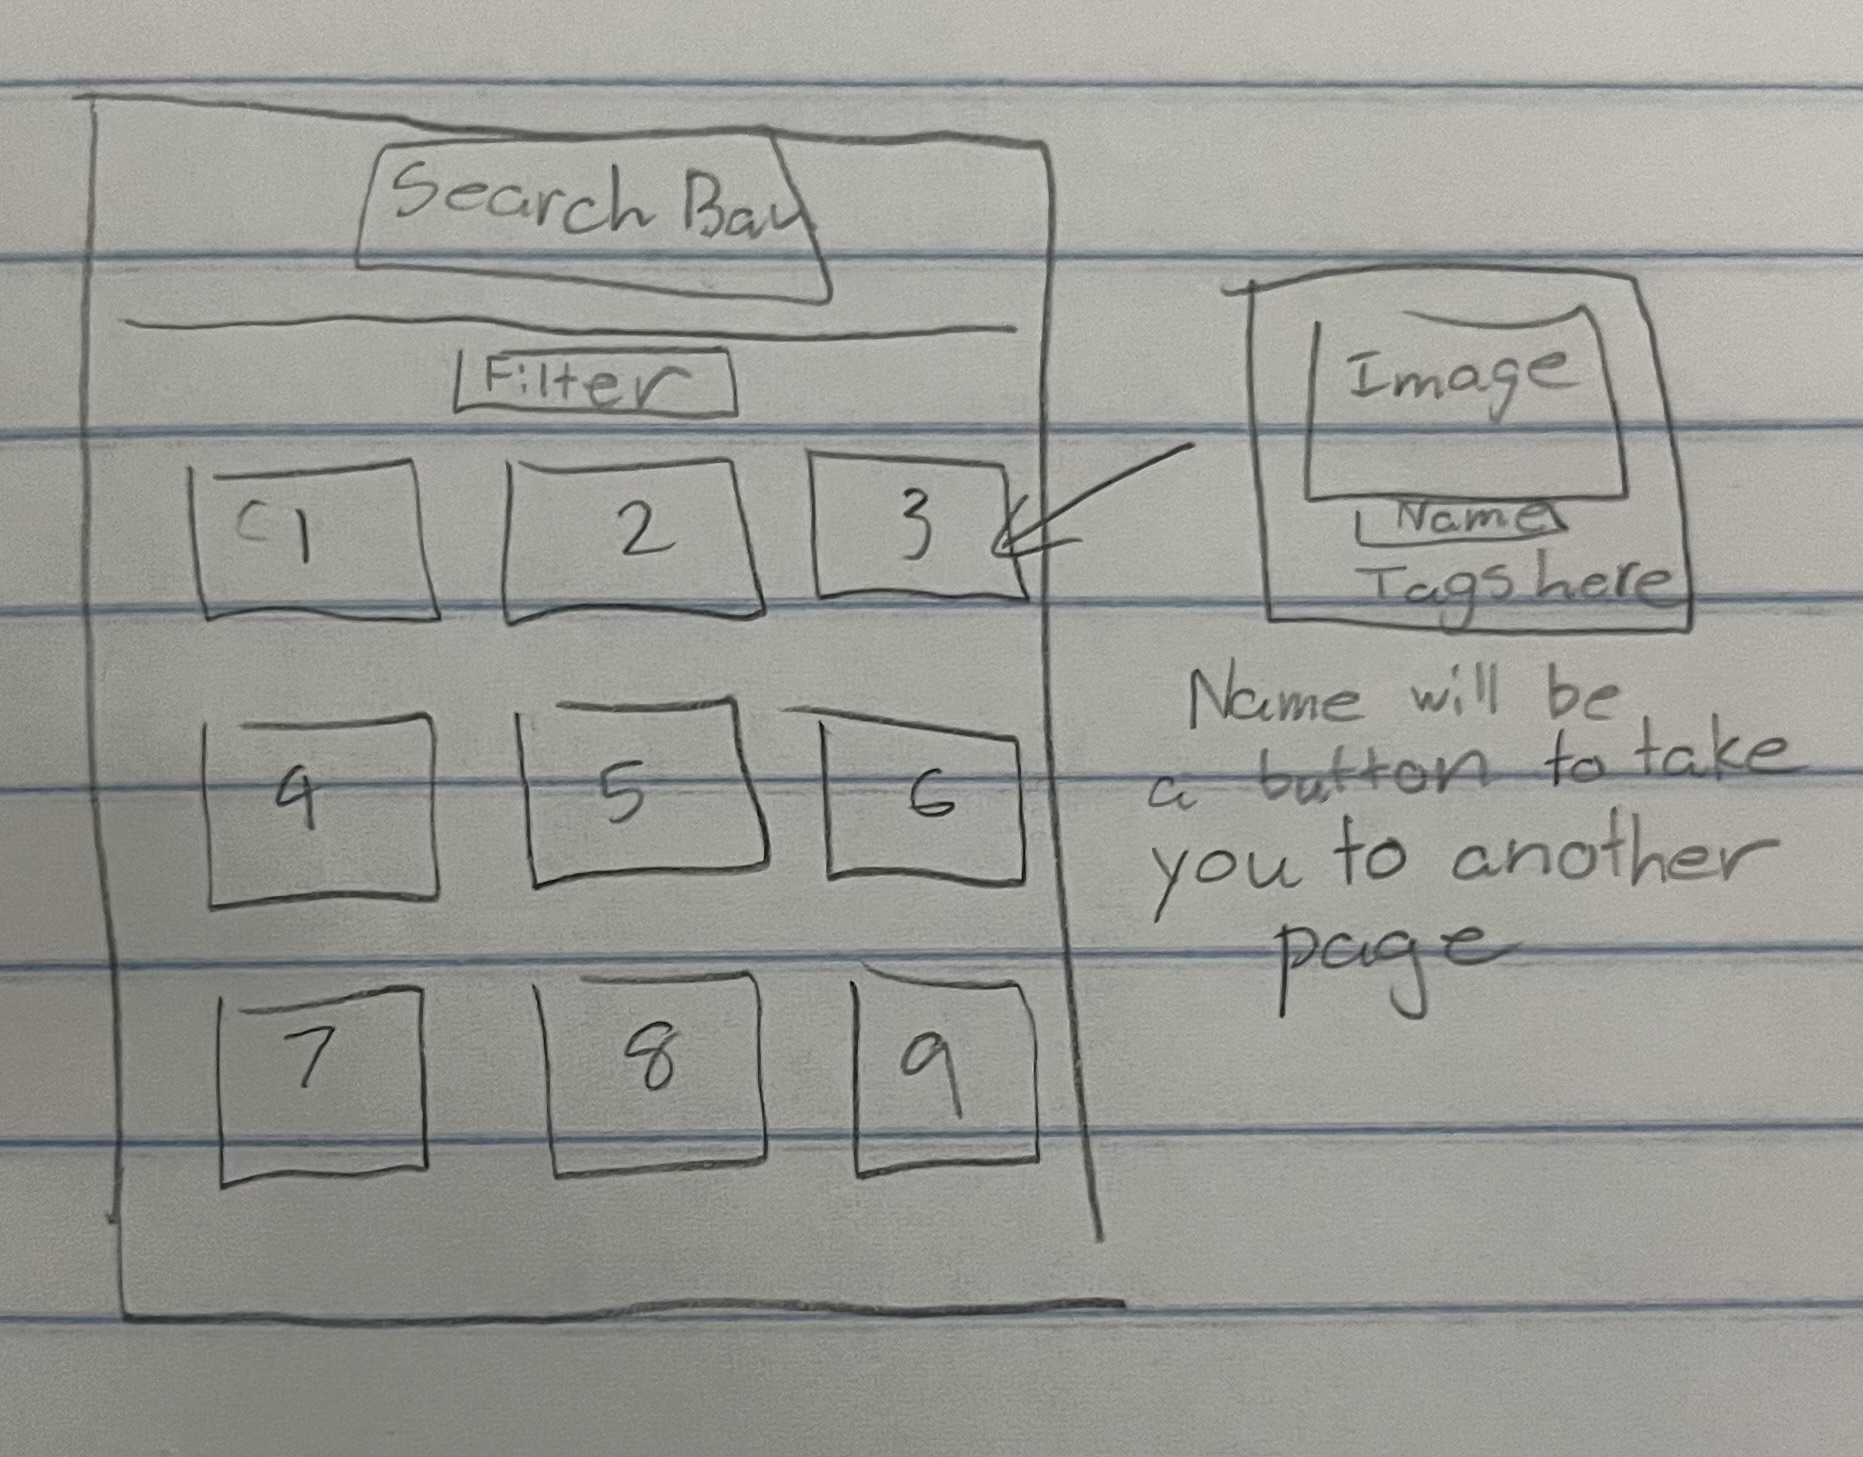 Search Bar
Filter
1 2 3
4 5 6
7 8 9
Image
Name
Tags here
Name will be
a button to take
you to another
page